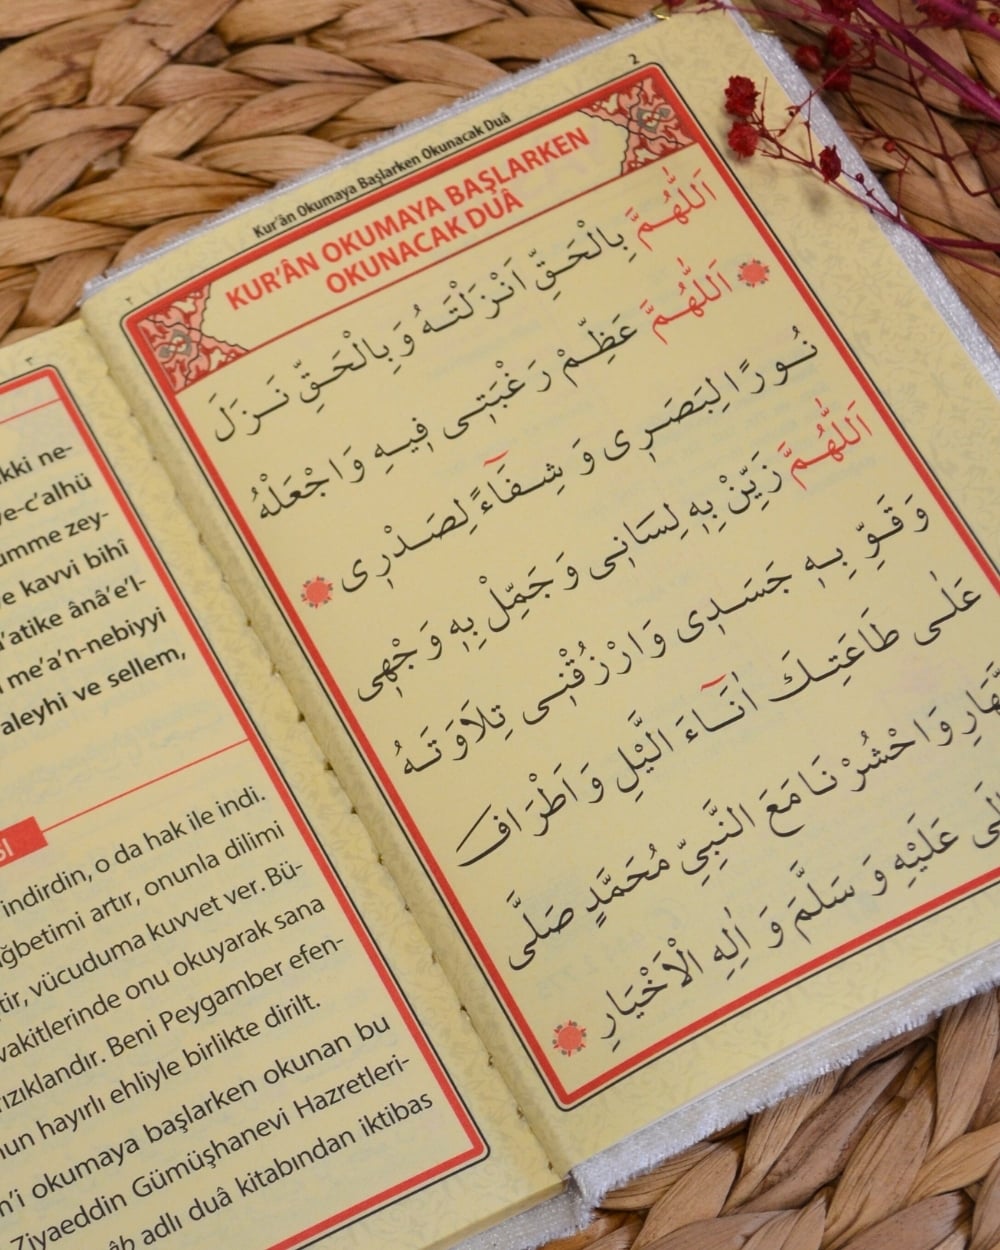 2
Kur'ân Okumaya Başlarken Okunacak Duâ
٢
KUR'ÂN OKUMAYA BAŞLARKEN
OKUNACAK DUÂ
اَللّٰهُمَّ بِالْحَقِّ اَنْزَلْتَهُ وَبِالْحَقِّ نَزَلَ
اَللّٰهُمَّ عَظِّمْ رَغْبَتٖى فٖيهِ وَاجْعَلْهُ
نُورًا لِبَصَرٖى وَ شِفَٓاءً لِصَدْرٖى
اَللّٰهُمَّ زَيِّنْ بِهٖ لِسَانٖى وَجَمِّلْ بِهٖ وَجْهٖى
وَقَوِّ بِهٖ جَسَدٖى وَارْزُقْنٖى تِلَاوَتَهُ
عَلٰى طَاعَتِكَ اٰنَٓاءَ الَّيْلِ وَاَطْرَافَ
وَاحْشُرْنَا مَعَ النَّبِيِّ مُحَمَّدٍ صَلَّى
عَلَيْهِ وَ سَلَّمَ وَ اٰلِهِ الْاَخْيَارِ
٣
ne-
ve-c'alhü
zey-
kavvi bihî
ânâe'l-
me'a'n-nebiyyi
aleyhi ve sellem,
indirdin, o da hak ile indi.
artır, onunla dilimi
vücuduma kuvvet ver. Bü-
vakitlerinde onu okuyarak sana
rızıklandır. Beni Peygamber efen-
hayırlı ehliyle birlikte dirilt.
okumaya başlarken okunan bu
Ziyaeddin Gümüşhanevi Hazretleri-
adlı duâ kitabından iktibas